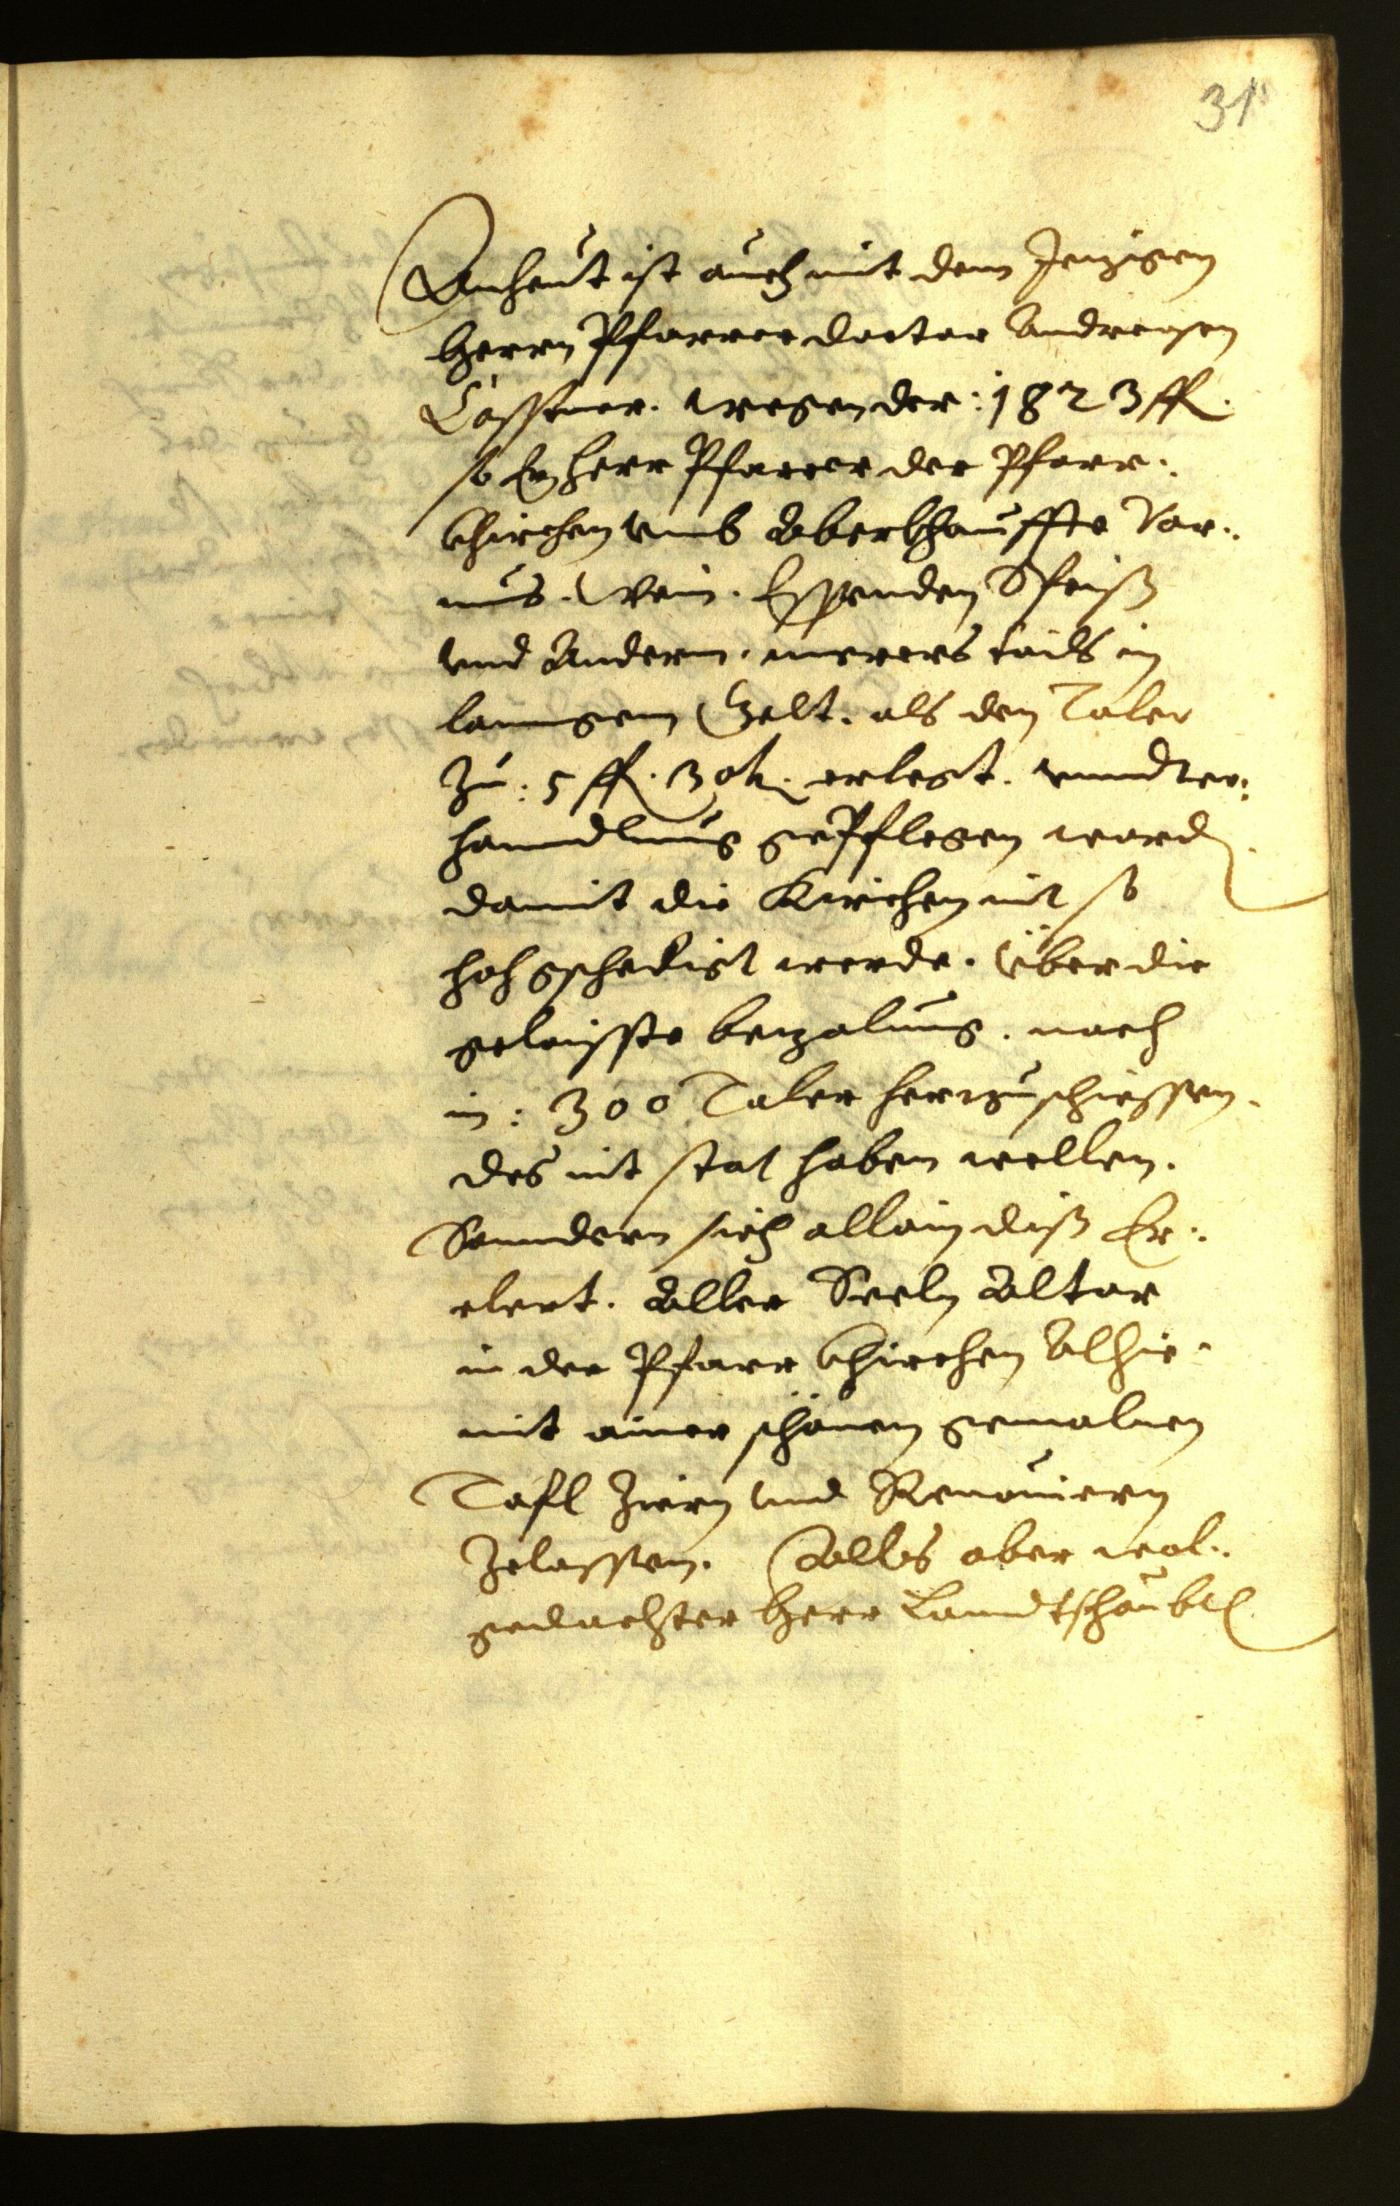 31
Anheut ist auch mit dem Jenigen
Herrn Pfarrer doctor Andreasen
Cassner. wegen der: 1823 ff.
so Er Herr Pfarrer der Pfarr:
khirchen umb Aberkhauffte Var:
nus. Wein. Essenden Speiß
und Andern. merers tails in
langem Gelt. als den Taler
zu: 5 ff. 30 k. erlegt. unndter:
hanndlung gepflegen word
damit die Kirchen nit so
hoh gschedigt werde. Über die
gelaisste bezalung. noch
in: 300 Taler herzuschiessen.
des nit stat haben wellen.
Sonndern sich allain diß Er:
clert. Aller Seeln Altar
in der Pfarr khirchen Alhie
mit ainer schönen gemalnen
Tafl Ziern und Renouiern
Zelassen. Alles aber wol:
gedachter Herr Landtshaubt